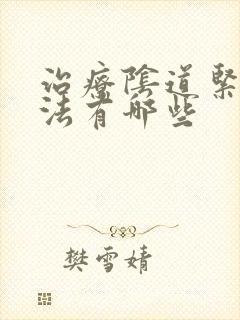 治療陰道緊
法有哪些
樊雪婧